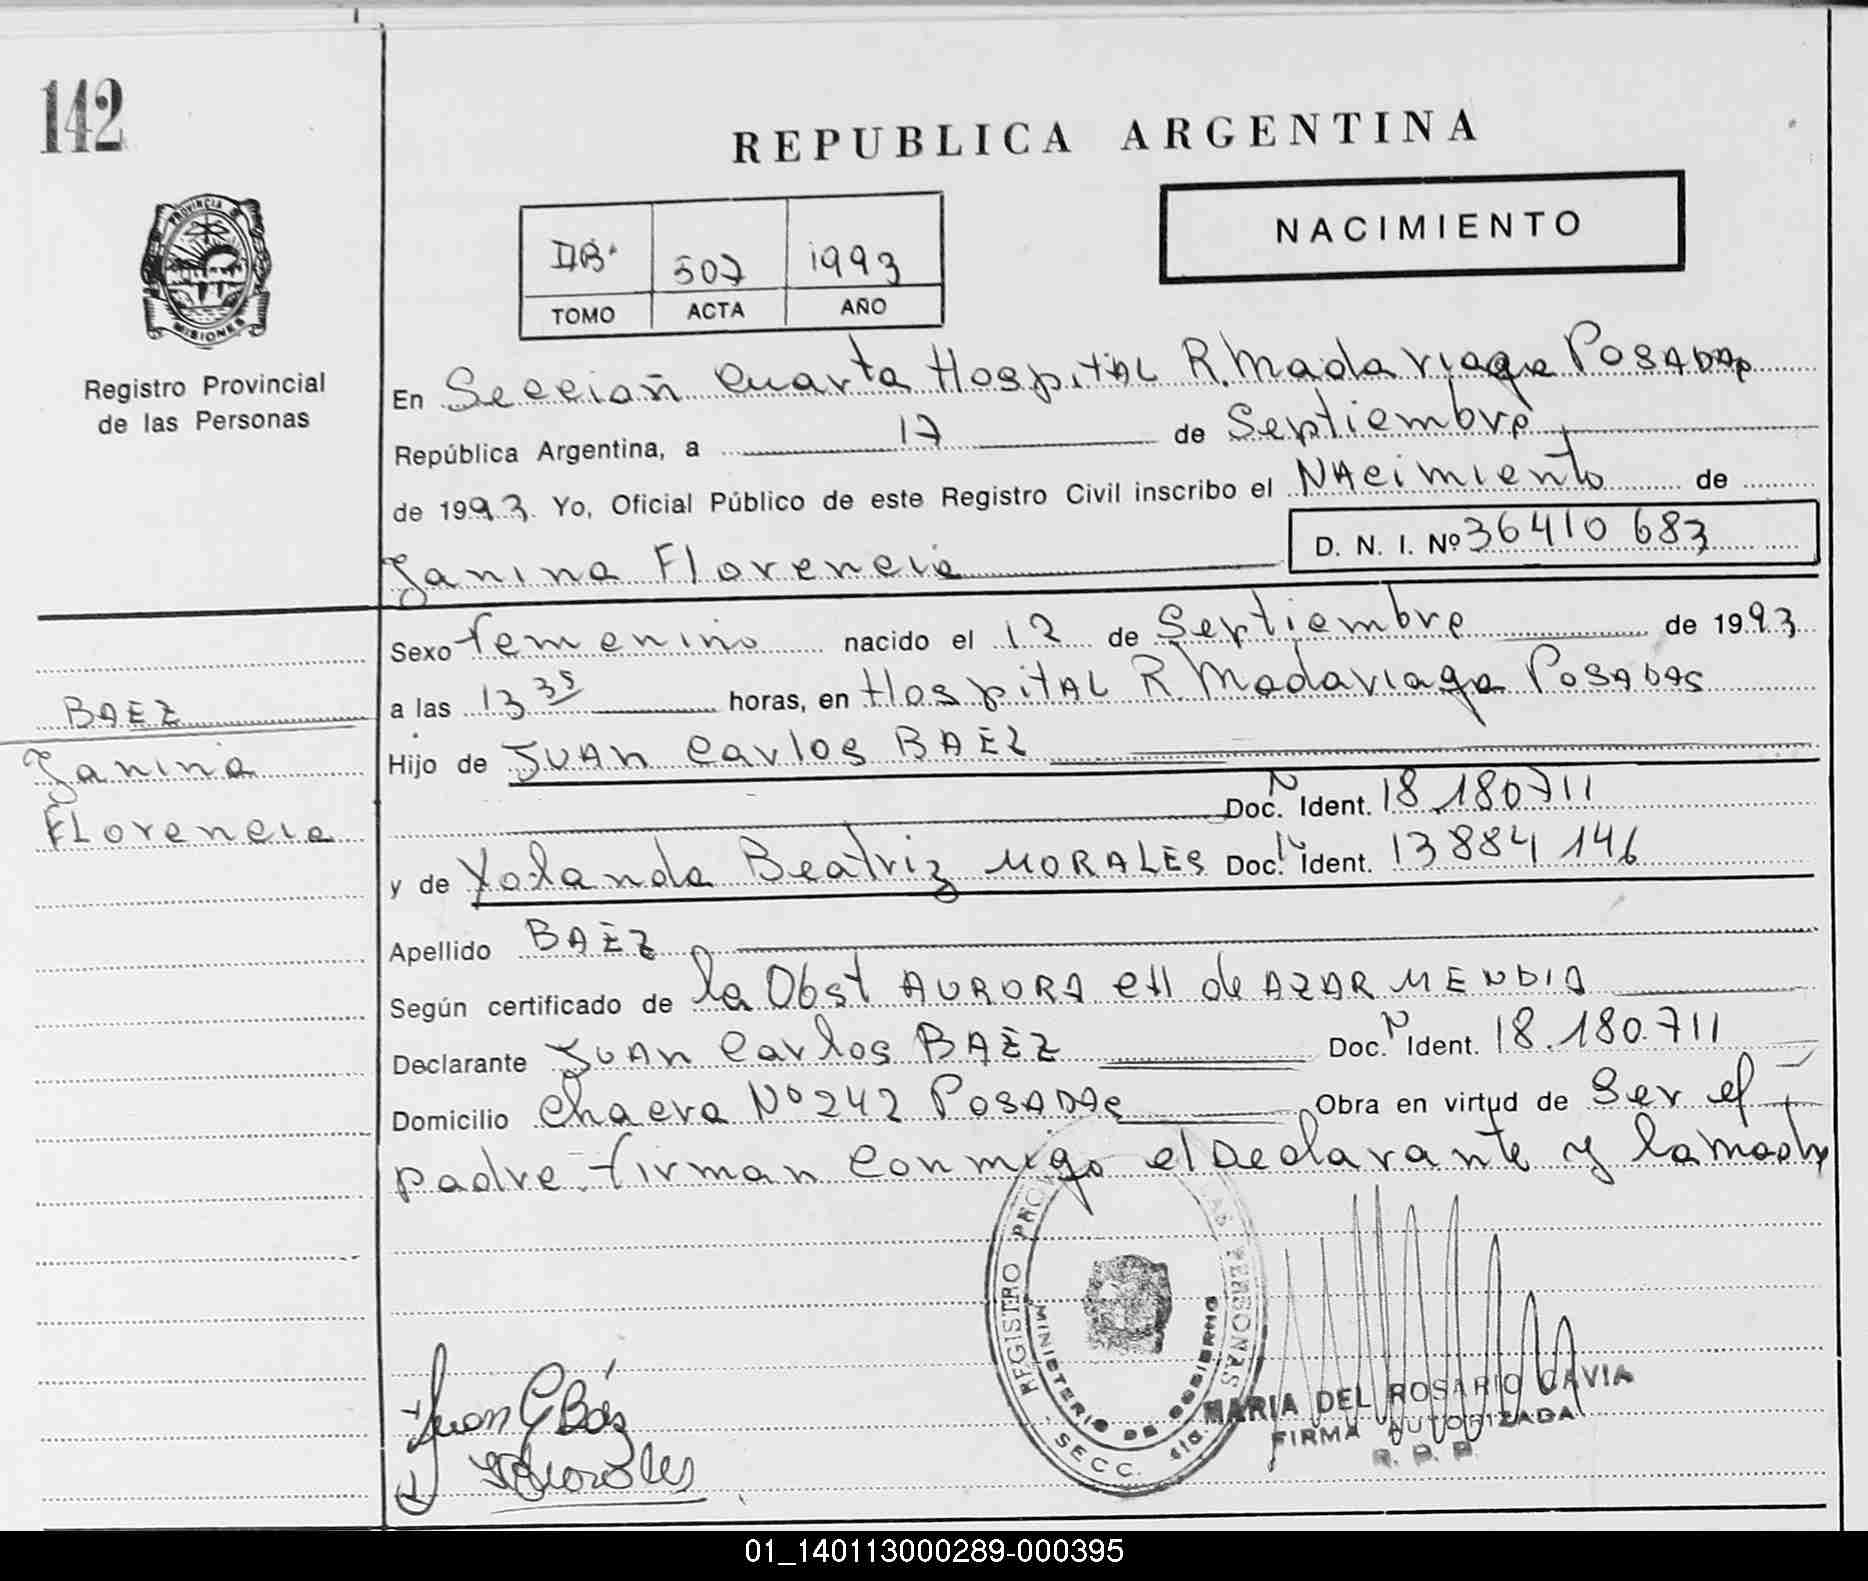 142
REPUBLICA ARGENTINA
PROVINCIA D MISIONES
Registro Provincial
de las Personas
DB. 507 1993
TOMO ACTA AÑO
NACIMIENTO
En Sección Cuarta Hospital R. Madariaga Posadas
República Argentina, a 17 de Septiembre
de 1993. Yo, Oficial Público de este Registro Civil inscribo el Nacimiento de
Janina Florencia D. N. I. Nº 36410683
Sexo femenino nacido el 12 de Septiembre de 1993
a las 13 35 horas, en Hospital R. Madariaga Posadas
Hijo de Juan Carlos BAEZ
Doc. N Ident. 18.180711
y de Yolanda Beatriz MORALES Doc. N Ident. 13884146
Apellido BAEZ
Según certificado de la Obst AURORA de AZARMENDIA
Declarante Juan Carlos BAEZ Doc. N Ident. 18.180.711
Domicilio Chacra Nº 242 POSADAS Obra en virtud de Ser el
padre. firman conmigo el Declarante y la madre
BAEZ
Janina
Florencia
REGISTRO PRO LAS PERSONAS
MINISTERIO DE GOBIERNO
SECC. 4ta.
Juan C Báez
Morales
MARIA DEL ROSARIO CAVIA
FIRMA AUTORIZADA
R. P. P.
01_140113000289-000395